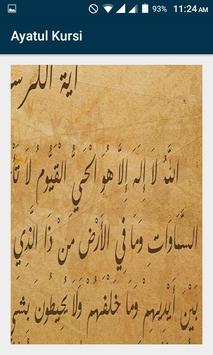 93% 11:24 AM
Ayatul Kursi
آية الكرسـ
اللهُ لَا إِلَهَ إِلَّا هُوَ الْحَيُّ الْقَيُّومُ لَا تَأْ
السَّمَاوَاتِ وَمَا فِي الْأَرْضِ مَنْ ذَا الَّذِي
بَيْنَ أَيْدِيهِمْ وَمَا خَلْفَهُمْ وَلَا يُحِيطُونَ بِشَيْ